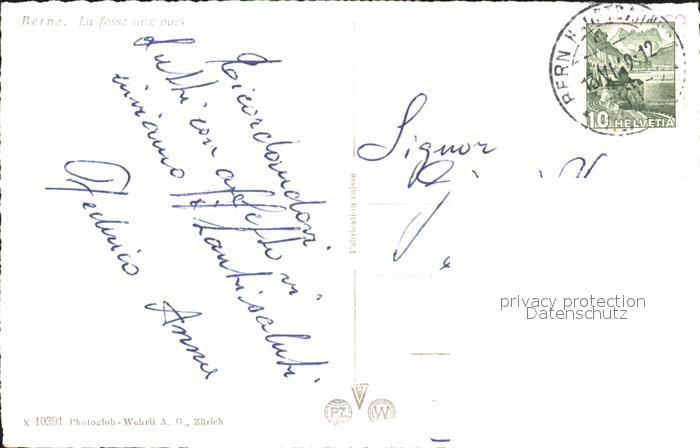 Berne. La fosse aux ours
Ricordandovi
tutti con affetto vi
inviamo tanti saluti
Federico Anna
Fabrication suisse
Signor
BERN
12
10 HELVETIA
privacy protection
Datenschutz
PZ
W
X 10391 Photoglob-Wehrli A. G., Zürich